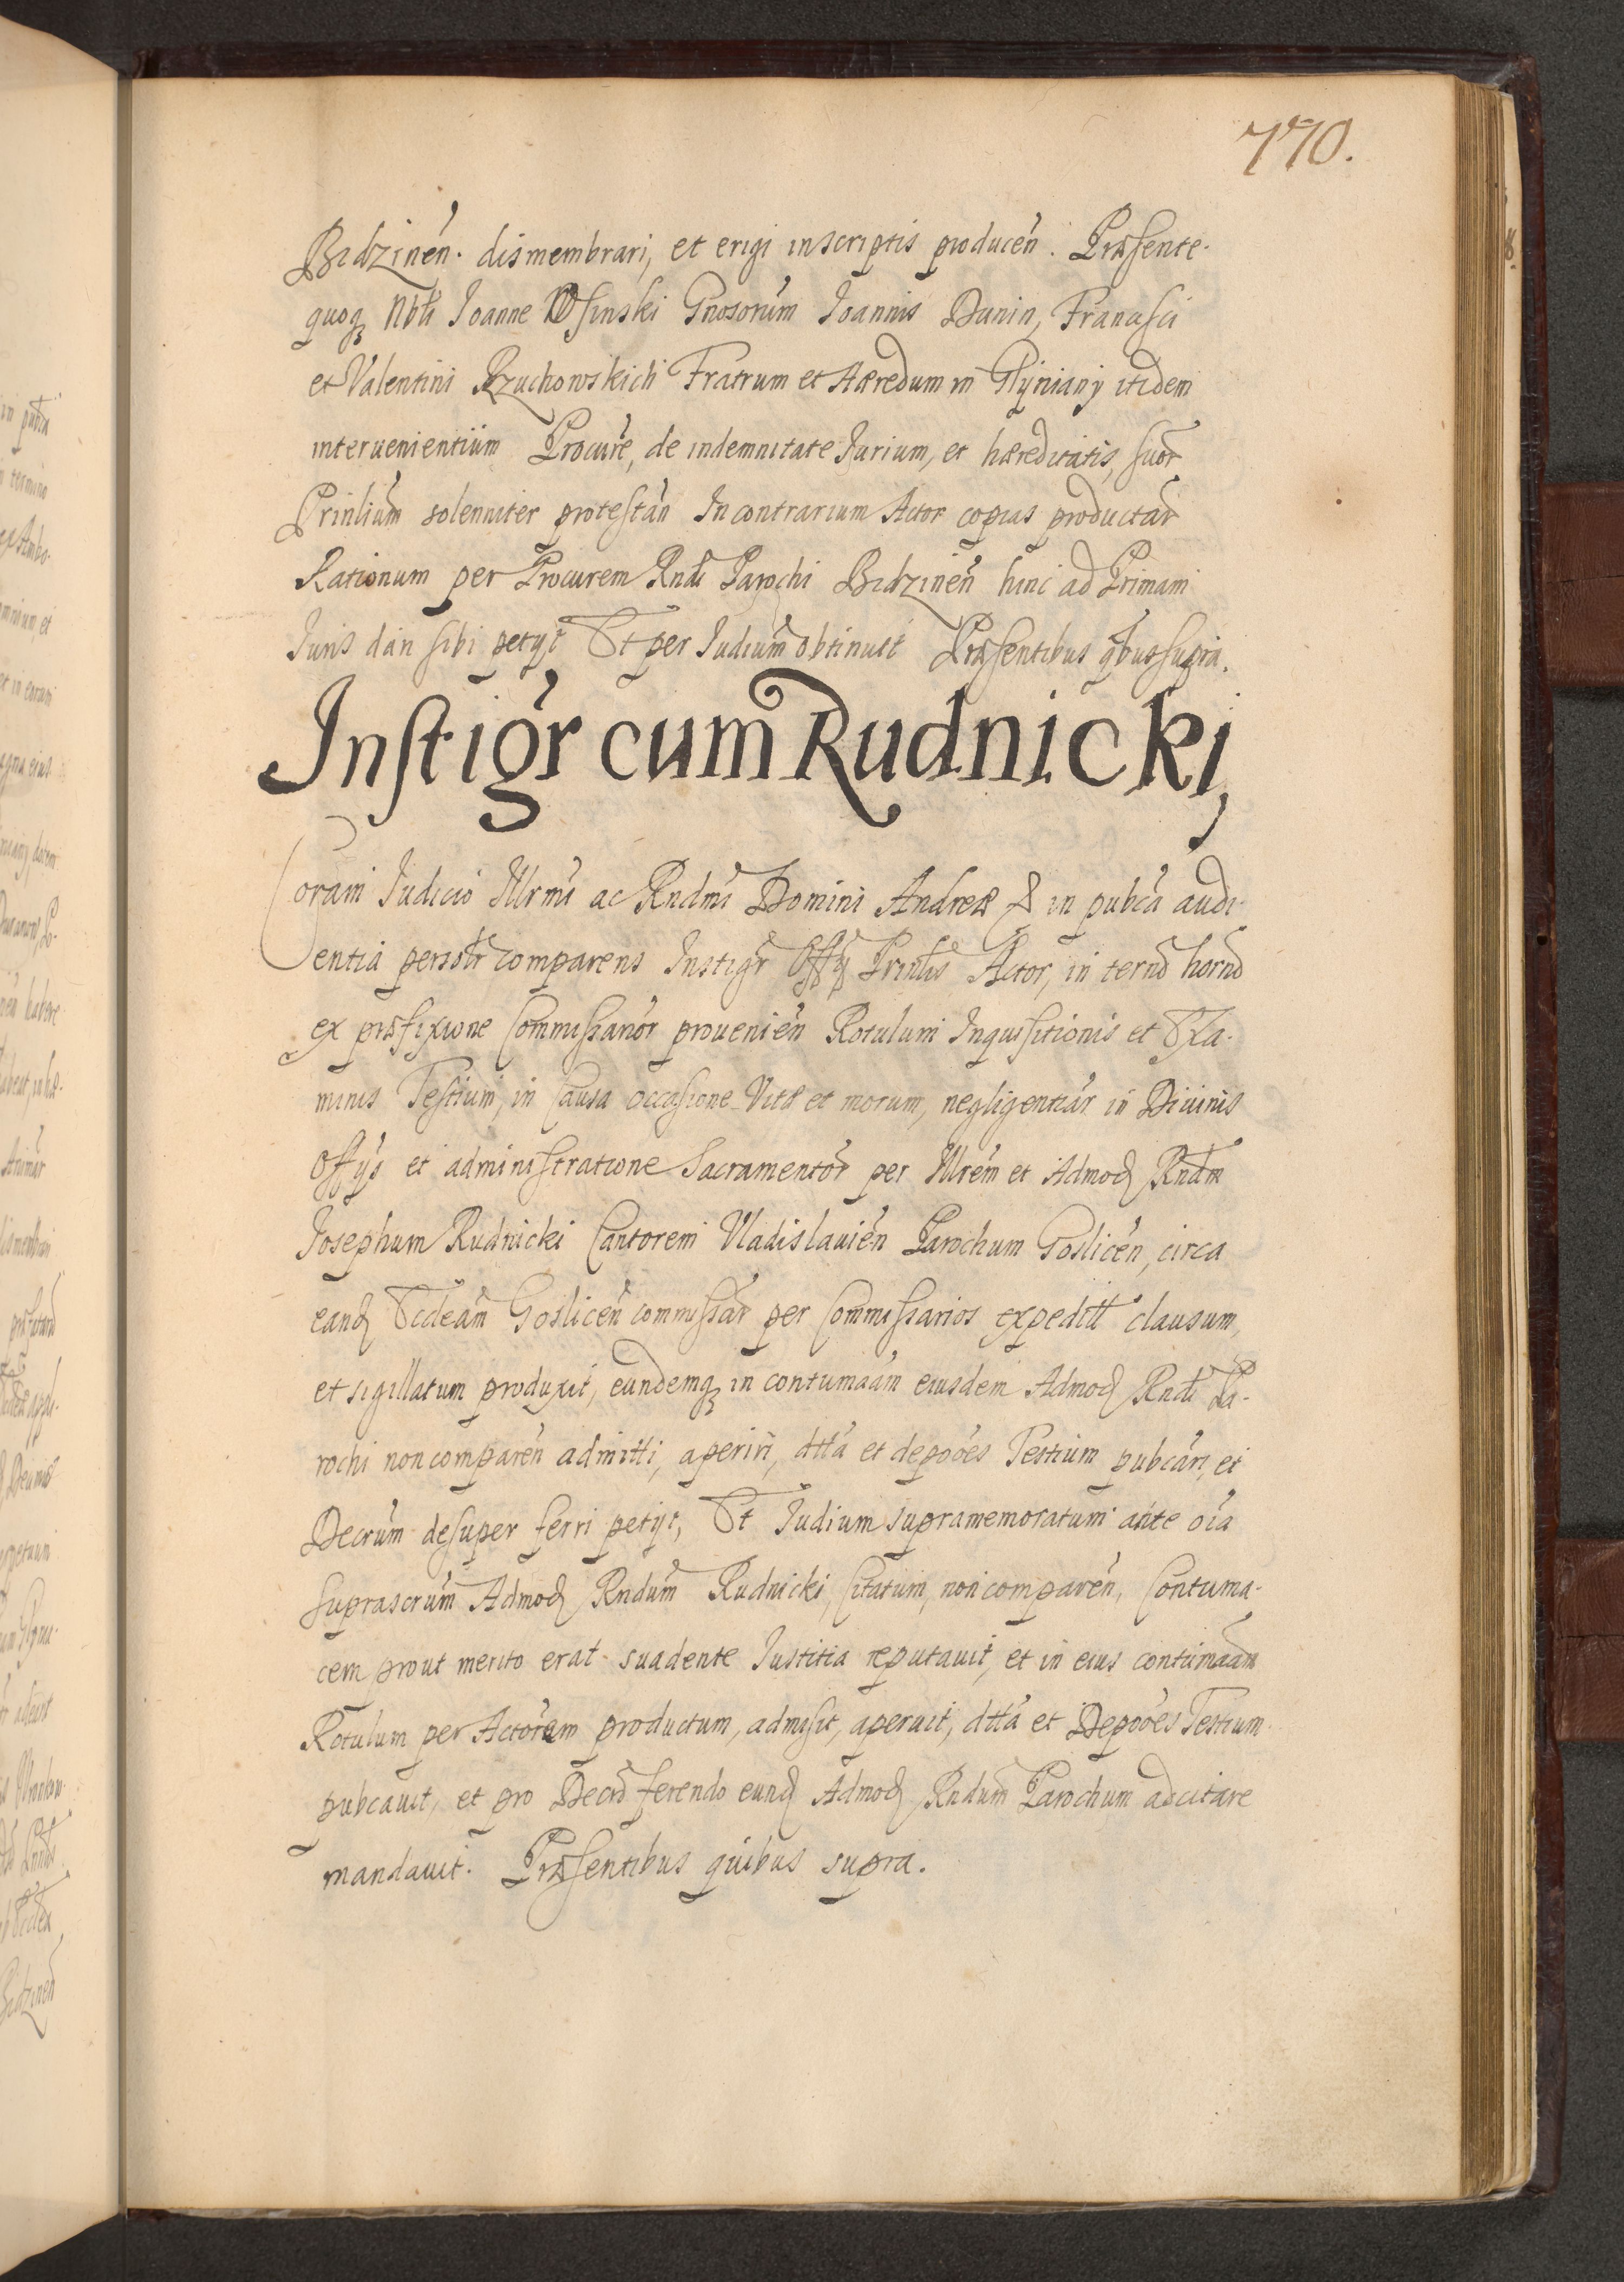 770.
Bidzinen. dismembrari, et erigi inscriptis producen. Præsente
quoq Nbli Joanne Osinski Gnosorum Joannis Dunin, Francisci
et Valentini Rzuchowskich Fratrum et Hæredum in Glyniany itidem
interuenientium Procure, de indemnitate Jurium, et hæreditatis, suor
Prinlium solenniter protestan In contrarium Actor copias productar
Rationum per Procurem Rndi Parochi Bidzinen hinc ad Primam
Juris dari sibi petyt Et per Judium obtinuit Præsentibus qbus supra.
Instigr cum Rudnickj
Coram Judicio Illrmi ac Rndmi Domini Andreæ & in pubca audi-
entia personlr comparens Instigr Offij Prinlis Actor, in terno horno
ex præfixione Commissarior prouenien Rotulum Inquisitionis et Exa-
minis Testium, in Causa occasione Vitæ et morum, negligentiar in Diuinis
Offijs et administratione Sacramentor per Illrem et Admod Rndm
Josephum Rudnicki Cantorem Vladislauien Parochum Goslicen, circa
eand Eccleam Goslicen commissar per Commissarios expedit clausum,
et sigillatum produxit, eundemq in contumaciam eiusdem Admod Rndi Pa-
rochi non comparen admitti, aperiri, dtta et depoões Testium pubcari, et
Decrum desuper ferri petyt, Et Judium supramemoratum ante oia
suprascrum Admod Rndum Rudnicki, Citatum, non comparen, Contuma-
cem prout merito erat suadente Justitia reputauit, et in eius contumaciam
Rotulum per Actorem productum, admisit, aperuit, dtta et Depoões Testium
pubcauit, et pro Decro ferendo eund Admod Rndum Parochum adcitare
mandauit. Præsentibus quibus supra.